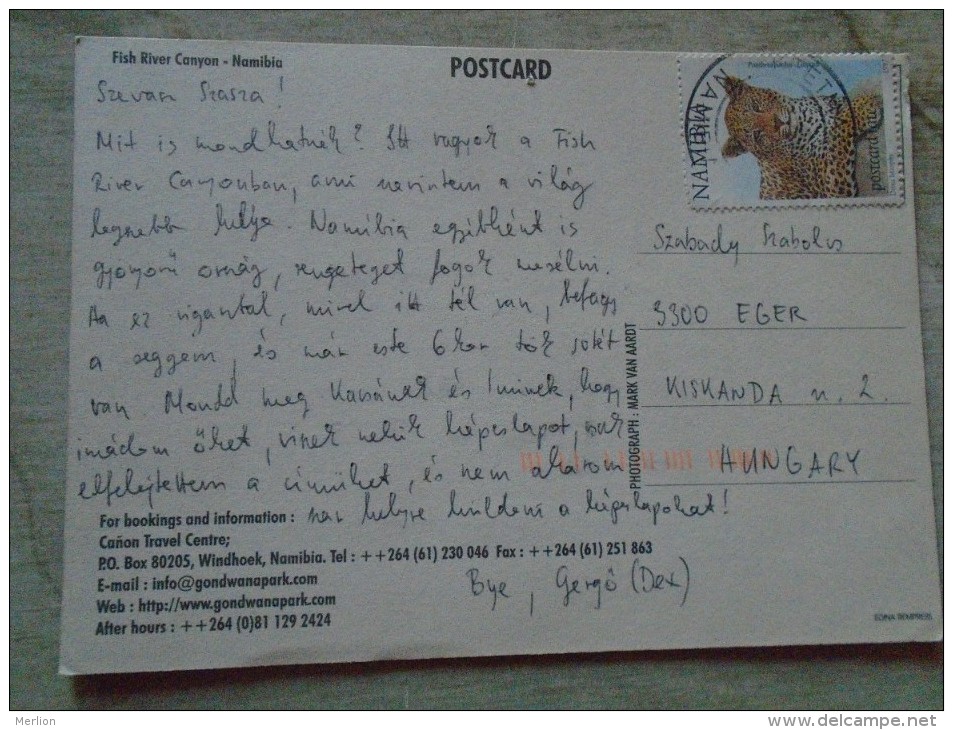 Fish River Canyon - Namibia
POSTCARD
Szevasz Szasza!
Mit is mondhatnék? Itt vagyok a Fish
River Canyonban, ami szerintem a világ
legszebb helye. Namíbia egyébként is
gyönyörű ország, rengeteget fogok mesélni.
Ha ez vigasztal, mivel itt tél van, befagy
a seggem, és már este 6kor tök sötét
van. Mondd meg és Iminek, hogy
imádom őket, viszek nekik képeslapot, csak
elfelejtettem a címüket, és nem akarom
rossz helyre küldeni a képeslapokat!
Bye, Gergő (Dex)
NAMIBIA
postcard rate
Szabady Szabolcs
3300 EGER
KISKANDA u. 2.
HUNGARY
PHOTOGRAPH : MARK VAN AARDT
For bookings and information :
Cañon Travel Centre;
P.O. Box 80205, Windhoek, Namibia. Tel : ++264 (61) 230 046 Fax : ++264 (61) 251 863
E-mail : info@gondwanapark.com
Web : http://www.gondwanapark.com
After hours : ++264 (0)81 129 2424
Merlion
www.delcampe.net